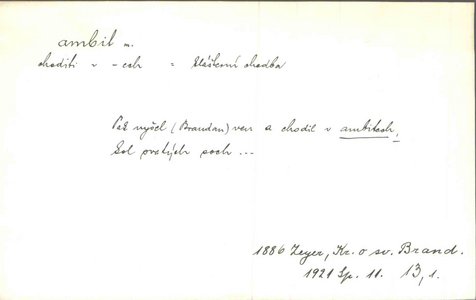 ambit m.
choditi v -ech = klášterní chodba
Pak vyšel (Brandan) ven a chodil v ambitech,
kol prostých soch ...
1886 Zeyer, Kr. o sv. Brand.
1921 Sp. 11. 13,1.